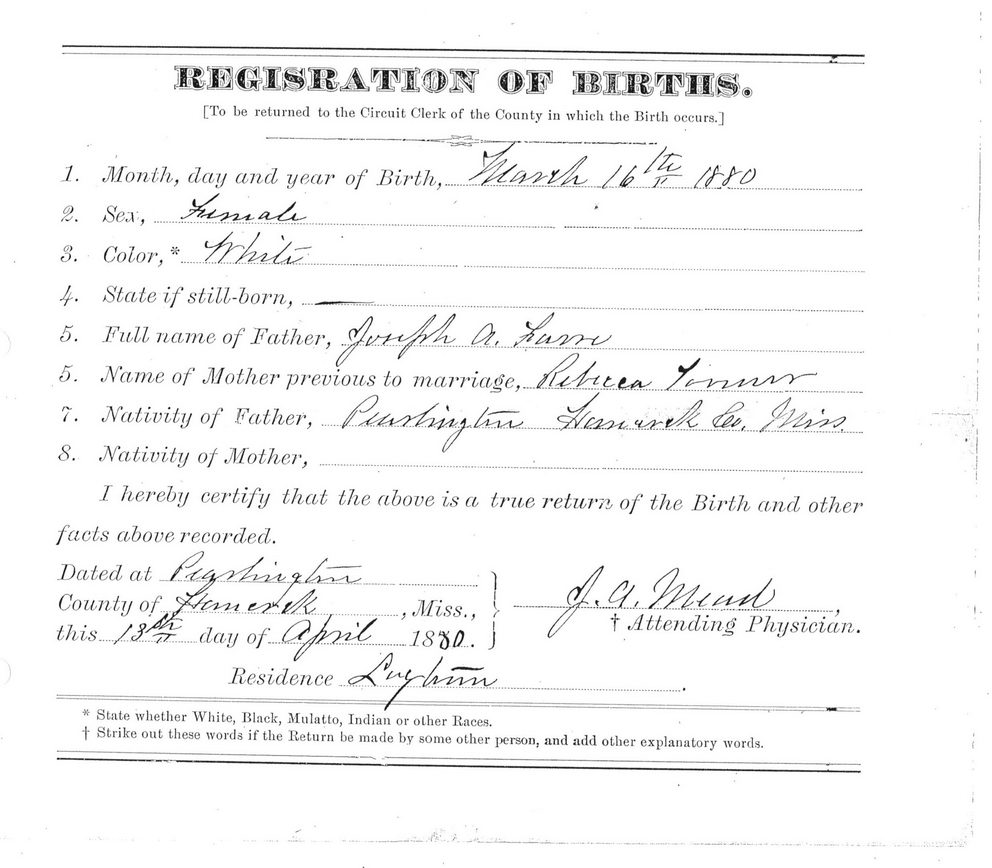 REGISRATION OF BIRTHS.
[To be returned to the Circuit Clerk of the County in which the Birth occurs.]
1. Month, day and year of Birth, March 16th 1880
2. Sex, Female
3. Color,* White
4. State if still-born, —
5. Full name of Father, Joseph A. Favre
5. Name of Mother previous to marriage, Rebecca
7. Nativity of Father, Pearlington Hancock Co, Miss.
8. Nativity of Mother,
I hereby certify that the above is a true return of the Birth and other
facts above recorded.
Dated at Pearlington
County of Hancock, Miss.,
this 13th day of April 1880.
J. A. Mead,
† Attending Physician.
Residence Logtown.
* State whether White, Black, Mulatto, Indian or other Races.
† Strike out these words if the Return be made by some other person, and add other explanatory words.